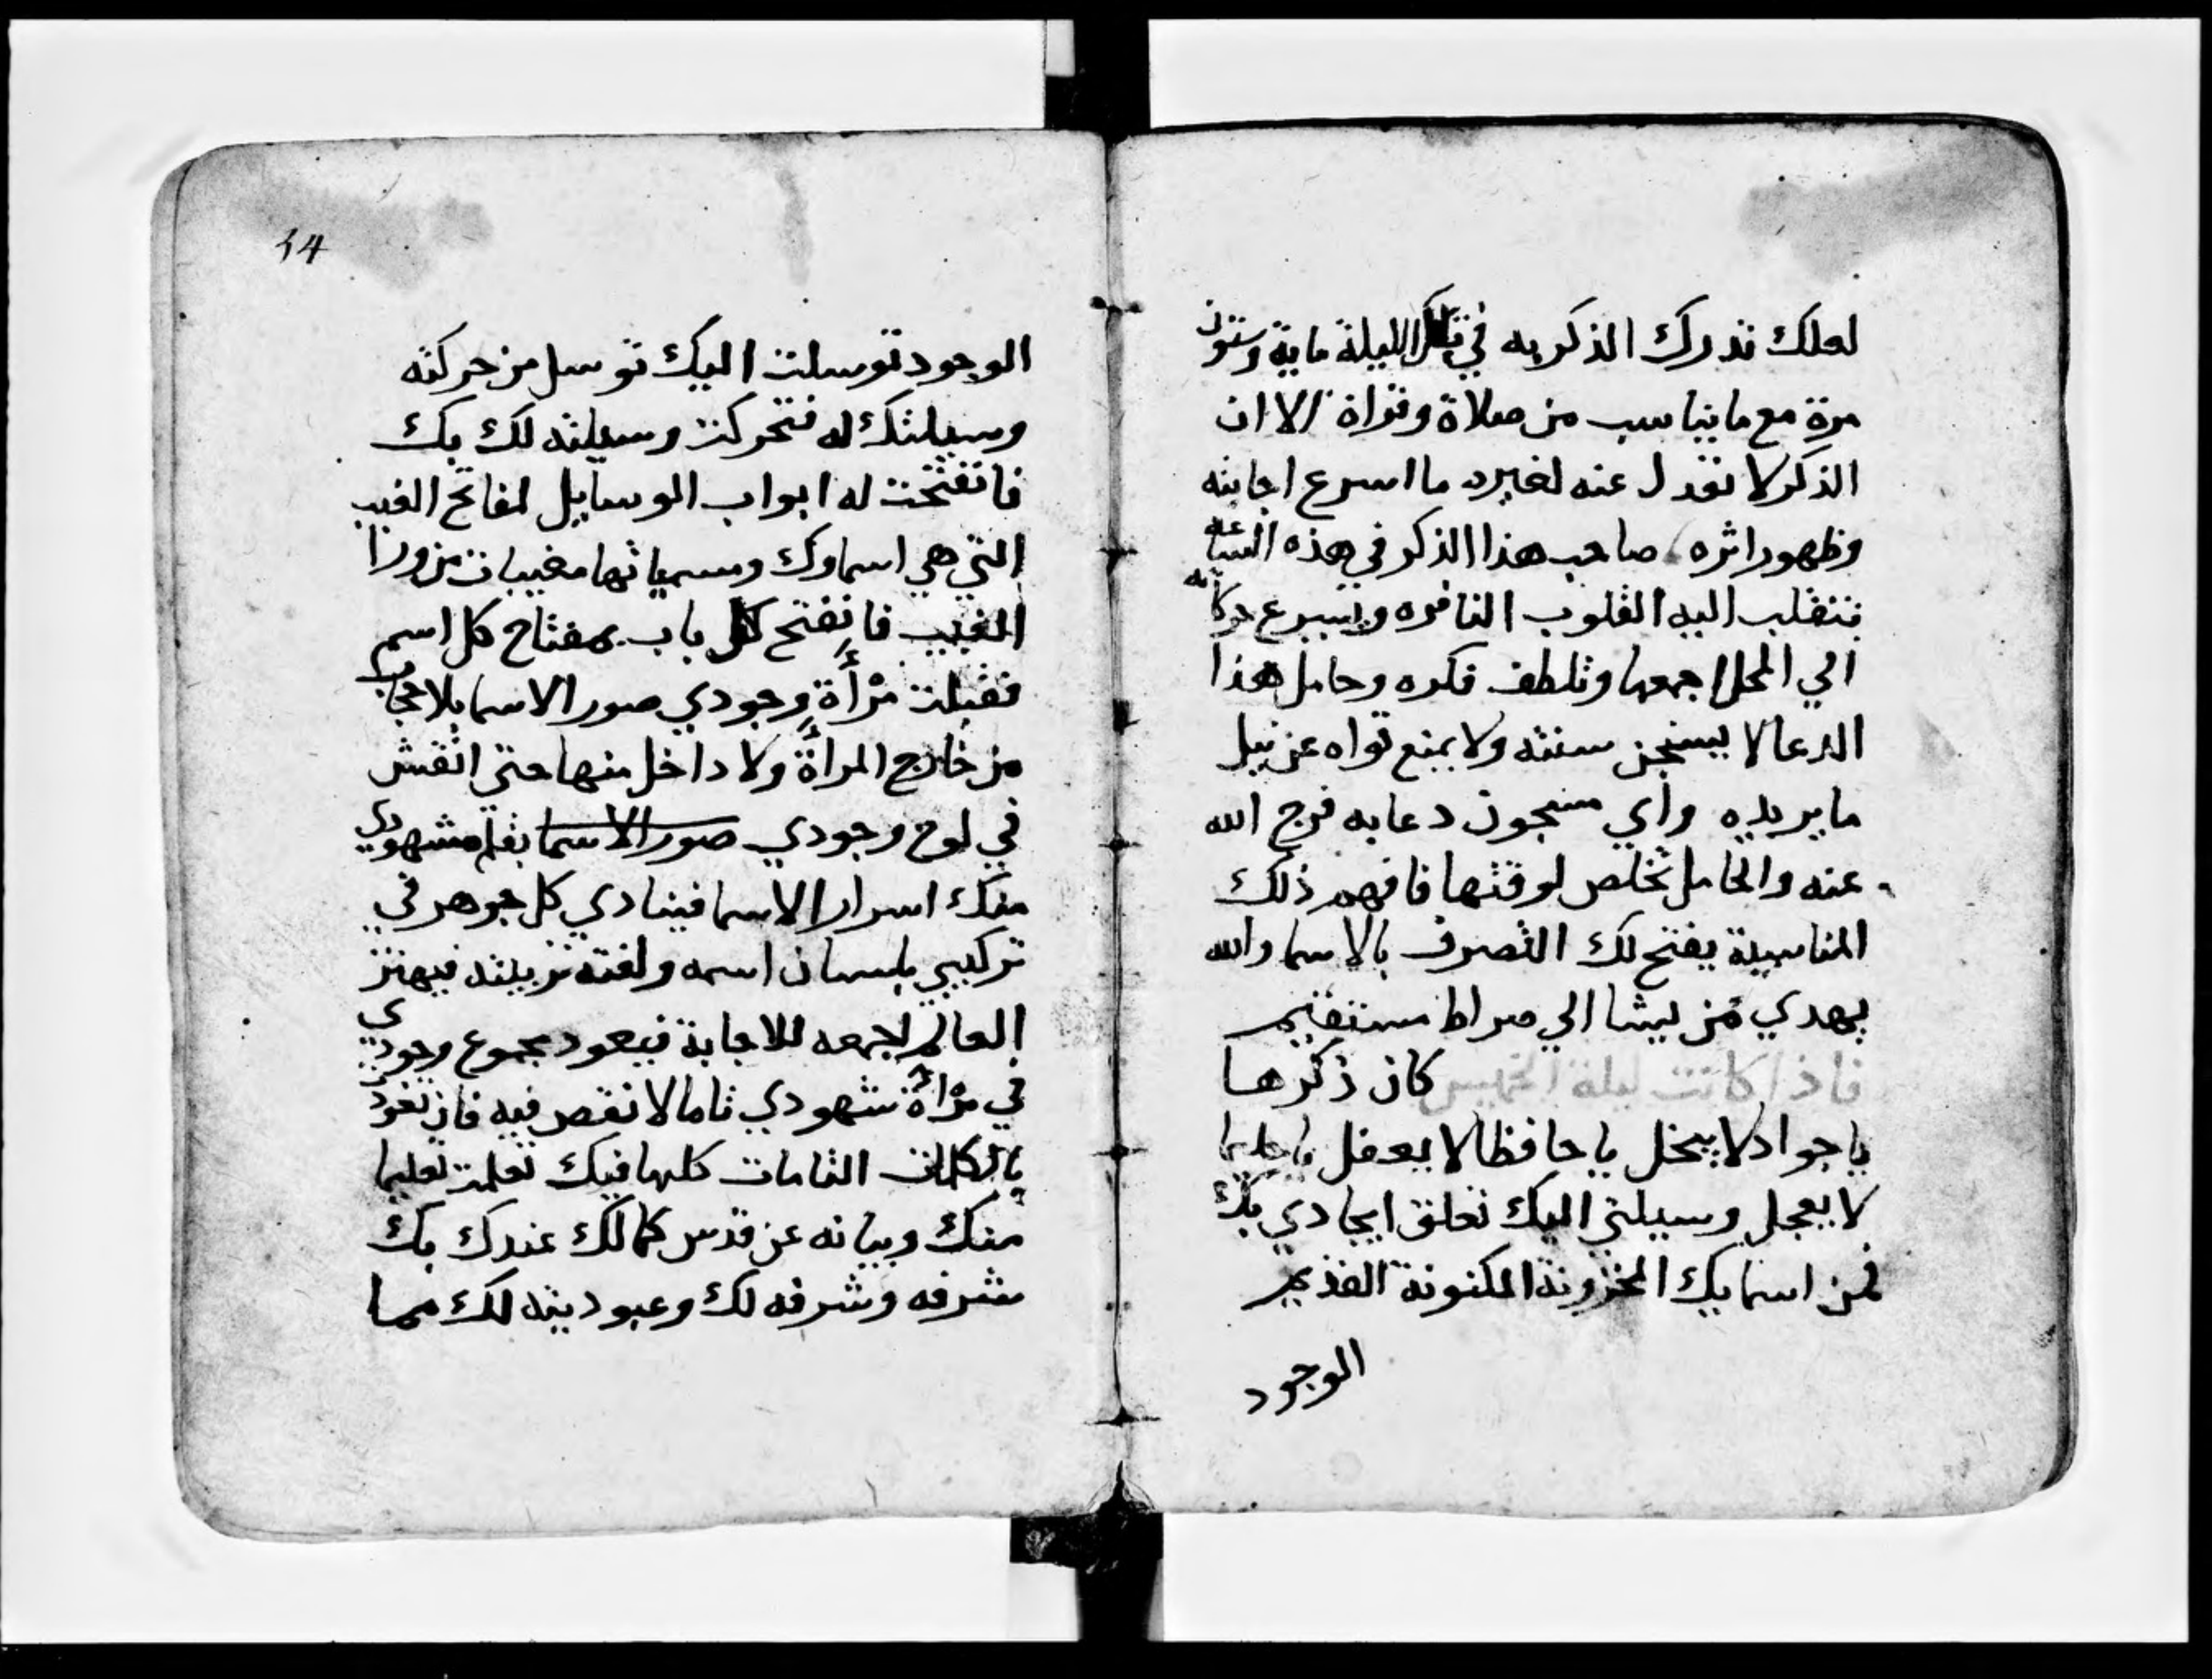 لعلك تدرك الذكر به في تلك الليلة ماية وستون
مرة مع ما يناسب من صلاة وقراة الا ان
الذكر لا تعدل عنه لغيره ما اسرع اجابته
وظهور اثره صاحب هذا الذكر في هذه الساعة
تنقلب اليه القلوب النافره ويسرع
الي المحل اجمعها وتلطف فكره وحامل هذا
الدعا لا يسنجن سنته ولا يمنع تواه عن نيل
ما يريده واي مسجون دعا به فرج الله
عنه والحامل تخلص لوقتها فافهم ذلك
المناسبة يفتح لك التصرف بالاسما والله
يهدي من يشا الي صراط مستقيم
فاذا كانت ليلة الخميس كان ذكرها
يا جواد لا يبخل يا حافظا لا يغفل يا حليما
لا يعجل وسيلتي اليك تعلق ايجادي بك
فمن اسمايك المخزونة المكنونة القديم
الوجود
14
الوجود توسلت اليك توسل من حركته
وسيلتك له فتحركت وسيلته لك بك
فانفتحت له ابواب الوسايل لمفاتح الغيب
التي هي اسماوك ومسمياتها مغيبات من ورا
الغيب فانفتح كل باب بمفتاح كل اسم
فقبلت مرأة وجودي صور الاسما بلا حجاب
من خارج المرأة ولا داخل منها حتي انقش
في لوح وجودي صور الاسما بقلم مشهودي
منك اسرار الاسما فينادي كل جوهر في
تركيبي بلسان اسمه ولغته تربيته فيهتز
العالم اجمعه للاجابة فيعود مجموع وجودي
في مرأة شهودي تاما لا نقص فيه فان تعوذ
بالكلمات التامات كلها فيك تعلمت تعليما
منك وبيانه عن قدس كمالك عندك بك
شرفه وشرفه لك وعبوديته لك مما